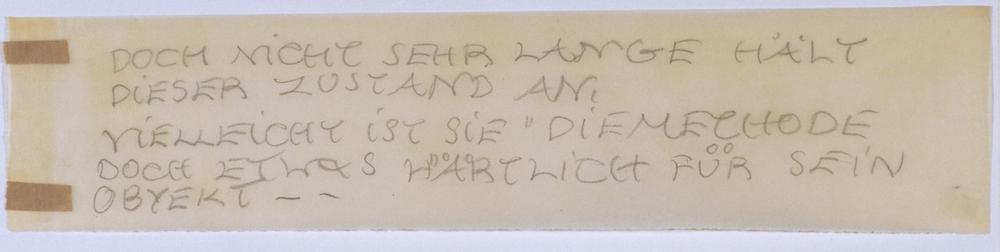 DOCH NICHT SEHR LANGE HÄLT
DIESER ZUSTAND AN.
VIELLEICHT IST SIE "DIEMETHODE
DOCH ETWAS HÄRTLICH FÜR SEIN
OBYEKT – –